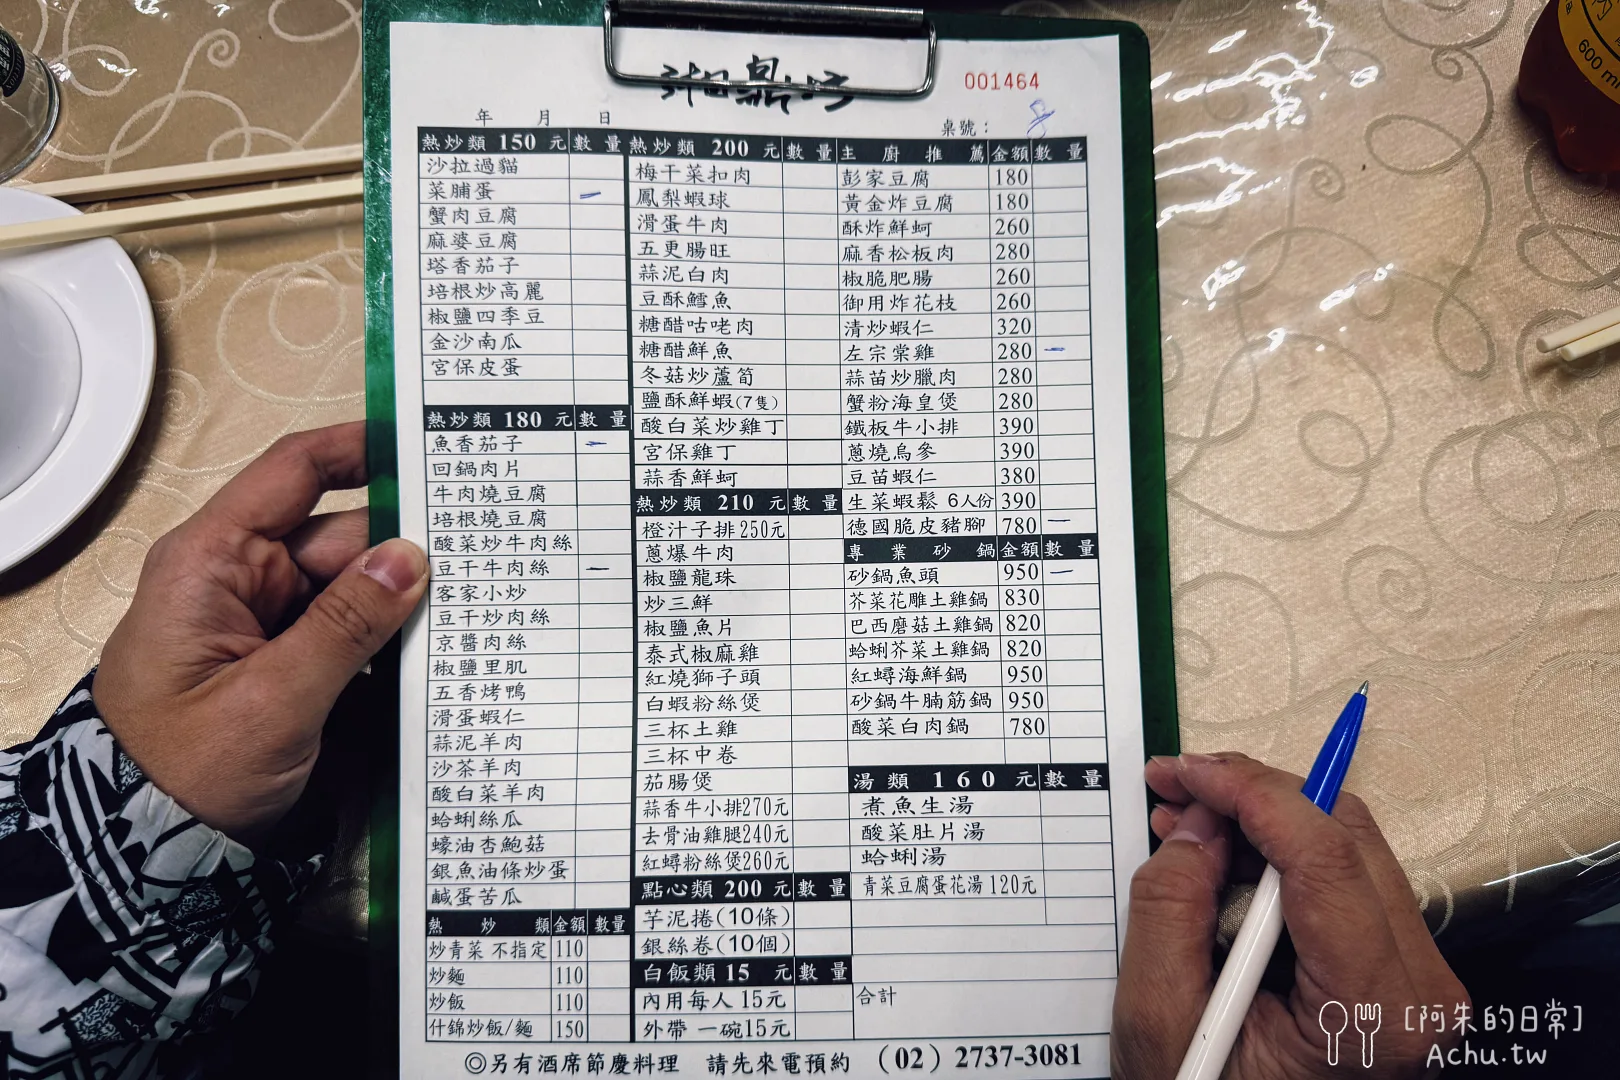 001464
年 月 日
桌號：
熱炒類 150 元 數量
沙拉過貓
菜脯蛋 一
蟹肉豆腐
麻婆豆腐
塔香茄子
培根炒高麗
椒鹽四季豆
金沙南瓜
宮保皮蛋
熱炒類 180 元 數量
魚香茄子 一
回鍋肉片
牛肉燒豆腐
培根燒豆腐
酸菜炒牛肉絲
豆干牛肉絲 一
客家小炒
豆干炒肉絲
京醬肉絲
椒鹽里肌
五香烤鴨
滑蛋蝦仁
蒜泥羊肉
沙茶羊肉
酸白菜羊肉
蛤蜊絲瓜
蠔油杏鮑菇
銀魚油條炒蛋
鹹蛋苦瓜
熱炒類 金額 數量
炒青菜 不指定 110
炒麵 110
炒飯 110
什錦炒飯/麵 150
熱炒類 200 元 數量
梅干菜扣肉
鳳梨蝦球
滑蛋牛肉
五更腸旺
蒜泥白肉
豆酥鱈魚
糖醋咕咾肉
糖醋鮮魚
冬菇炒蘆筍
鹽酥鮮蝦(7隻)
酸白菜炒雞丁
宮保雞丁
蒜香鮮蚵
熱炒類 210 元 數量
橙汁子排250元
蔥爆牛肉
椒鹽龍珠
炒三鮮
椒鹽魚片
泰式椒麻雞
紅燒獅子頭
白蝦粉絲煲
三杯土雞
三杯中卷
茄腸煲
蒜香牛小排270元
去骨油雞腿240元
紅蟳粉絲煲260元
點心類 200 元 數量
芋泥捲(10條)
銀絲卷(10個)
白飯類 15 元 數量
內用每人 15元
外帶 一碗15元
主廚推薦 金額 數量
彭家豆腐 180
黃金炸豆腐 180
酥炸鮮蚵 260
麻香松板肉 280
椒脆肥腸 260
御用炸花枝 260
清炒蝦仁 320
左宗棠雞 280 一
蒜苗炒臘肉 280
蟹粉海皇煲 280
鐵板牛小排 390
蔥燒烏參 390
豆苗蝦仁 380
生菜蝦鬆 6人份 390
德國脆皮豬腳 780 一
專業砂鍋 金額 數量
砂鍋魚頭 950 一
芥菜花雕土雞鍋 830
巴西蘑菇土雞鍋 820
蛤蜊芥菜土雞鍋 820
紅蟳海鮮鍋 950
砂鍋牛腩筋鍋 950
酸菜白肉鍋 780
湯類 160 元 數量
煮魚生湯
酸菜肚片湯
蛤蜊湯
青菜豆腐蛋花湯 120元
合計
◎另有酒席節慶料理 請先來電預約 (02) 2737-3081
600 ml
[阿朱的日常]
Achu.tw